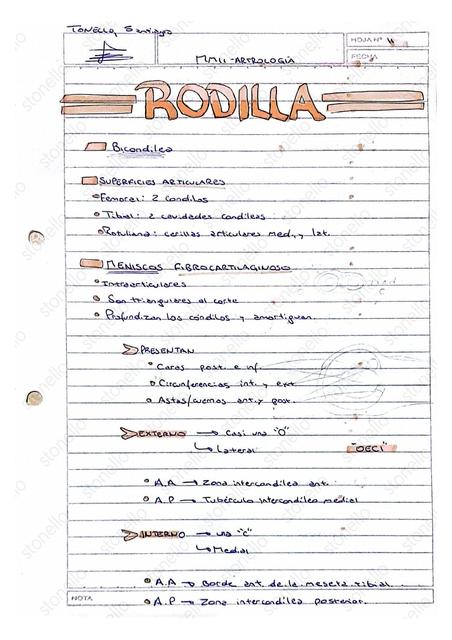 TONELLO, Santiago
HOJA Nº
FECHA
MMII - ARTROLOGÍA
RODILLA
Bicondilea
SUPERFICIES ARTICULARES
Femoral: 2 condilos
Tibial: 2 cavidades condileas
Rotuliana: carillas articulares med. y lat.
MENISCOS FIBROCARTILAGINOSO
Intraarticulares
Son triangulares al corte
Profundizan los cóndilos y amortiguan.
PRESENTAN
Caras post. e inf.
Circunferencias int. y ext.
Astas/cuernos ant. y post.
EXTERNO → Casi una "O"
↳ Lateral
"OECI"
A.A → Zona intercondilea ant.
A.P → Tubérculo intercondileo medial
INTERNO → una "C"
↳ Medial
A.A → Borde ant. de la meseta tibial.
NOTA
A.P → Zona intercondilea posterior.
stonello